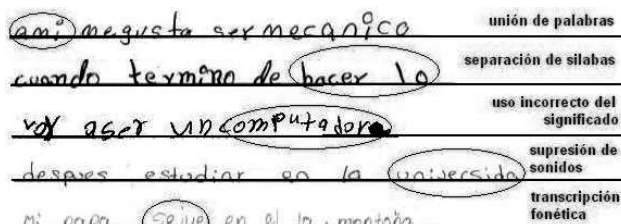 ami megusta ser mecanico unión de palabras
cuando termino de hacer lo separación de silabas
voy aser un computador uso incorrecto del significado
despues estudiar en la universida supresión de sonidos
mi papa se jue en el la montaña transcripción fonética